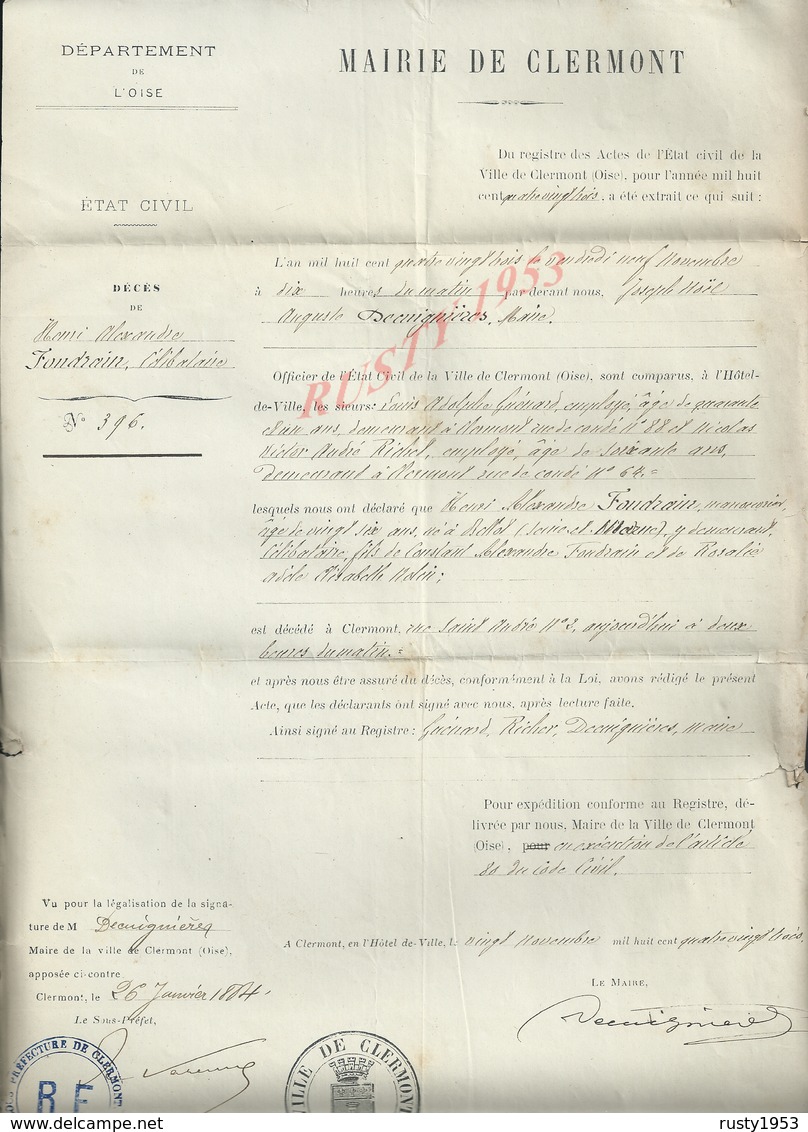 DÉPARTEMENT
DE
L'OISE
ÉTAT CIVIL
DÉCÈS
DE
Henri Alexandre
Fondrain, Célibataire
No 396.
MAIRIE DE CLERMONT
Du registre des Actes de l'État civil de la
Ville de Clermont (Oise), pour l'année mil huit
cent quatre vingt trois, a été extrait ce qui suit :
L'an mil huit cent quatre vingt trois le vendredi neuf Novembre
à dix heures du matin par devant nous, Joseph Noël
Auguste Decuignières, Maire.
Officier de l'État Civil de la Ville de Clermont (Oise), sont comparus, à l'Hôtel-
de-Ville, les sieurs: Louis Adolphe Guénard, employé, âgé de quarante
et un ans, demeurant à Clermont rue de condé No 88 et Nicolas
Victor André Richer, employé, âgé de soixante ans,
demeurant à Clermont rue de condé No 64.=
lesquels nous ont déclaré que Henri Alexandre Fondrain, manouvrier,
âgé de vingt six ans, né à Bellot (Seine et Marne), y demeurant,
Célibataire, fils de Constant Alexandre Fondrain et de Rosalie
adèle Elisabeth
est décédé à Clermont, rue Saint André No 2, aujourd'hui à deux
heures du matin.=
et après nous être assuré du décès, conformément à la Loi, avons rédigé le présent
Acte, que les déclarants ont signé avec nous, après lecture faite.
Ainsi signé au Registre : Guénard, Richer, Decuignières, maire
Pour expédition conforme au Registre, dé-
livrée par nous, Maire de la Ville de Clermont
(Oise), pour en exécution de l'article
80 du Code Civil.
A Clermont, en l'Hôtel de-Ville, l: vingt Novembre mil huit cent quatre vingt trois.
LE MAIRE,
Decuignières
Vu pour la légalisation de la signa-
ture de M Decuignières
Maire de la ville de Clermont (Oise),
apposée ci-contre
Clermont, le 26 Janvier 1884.
Le Sous-Préfet,
PRÉFECTURE DE CLERMONT
R F
VILLE DE CLERMONT
RUSTY 1953
rusty1953